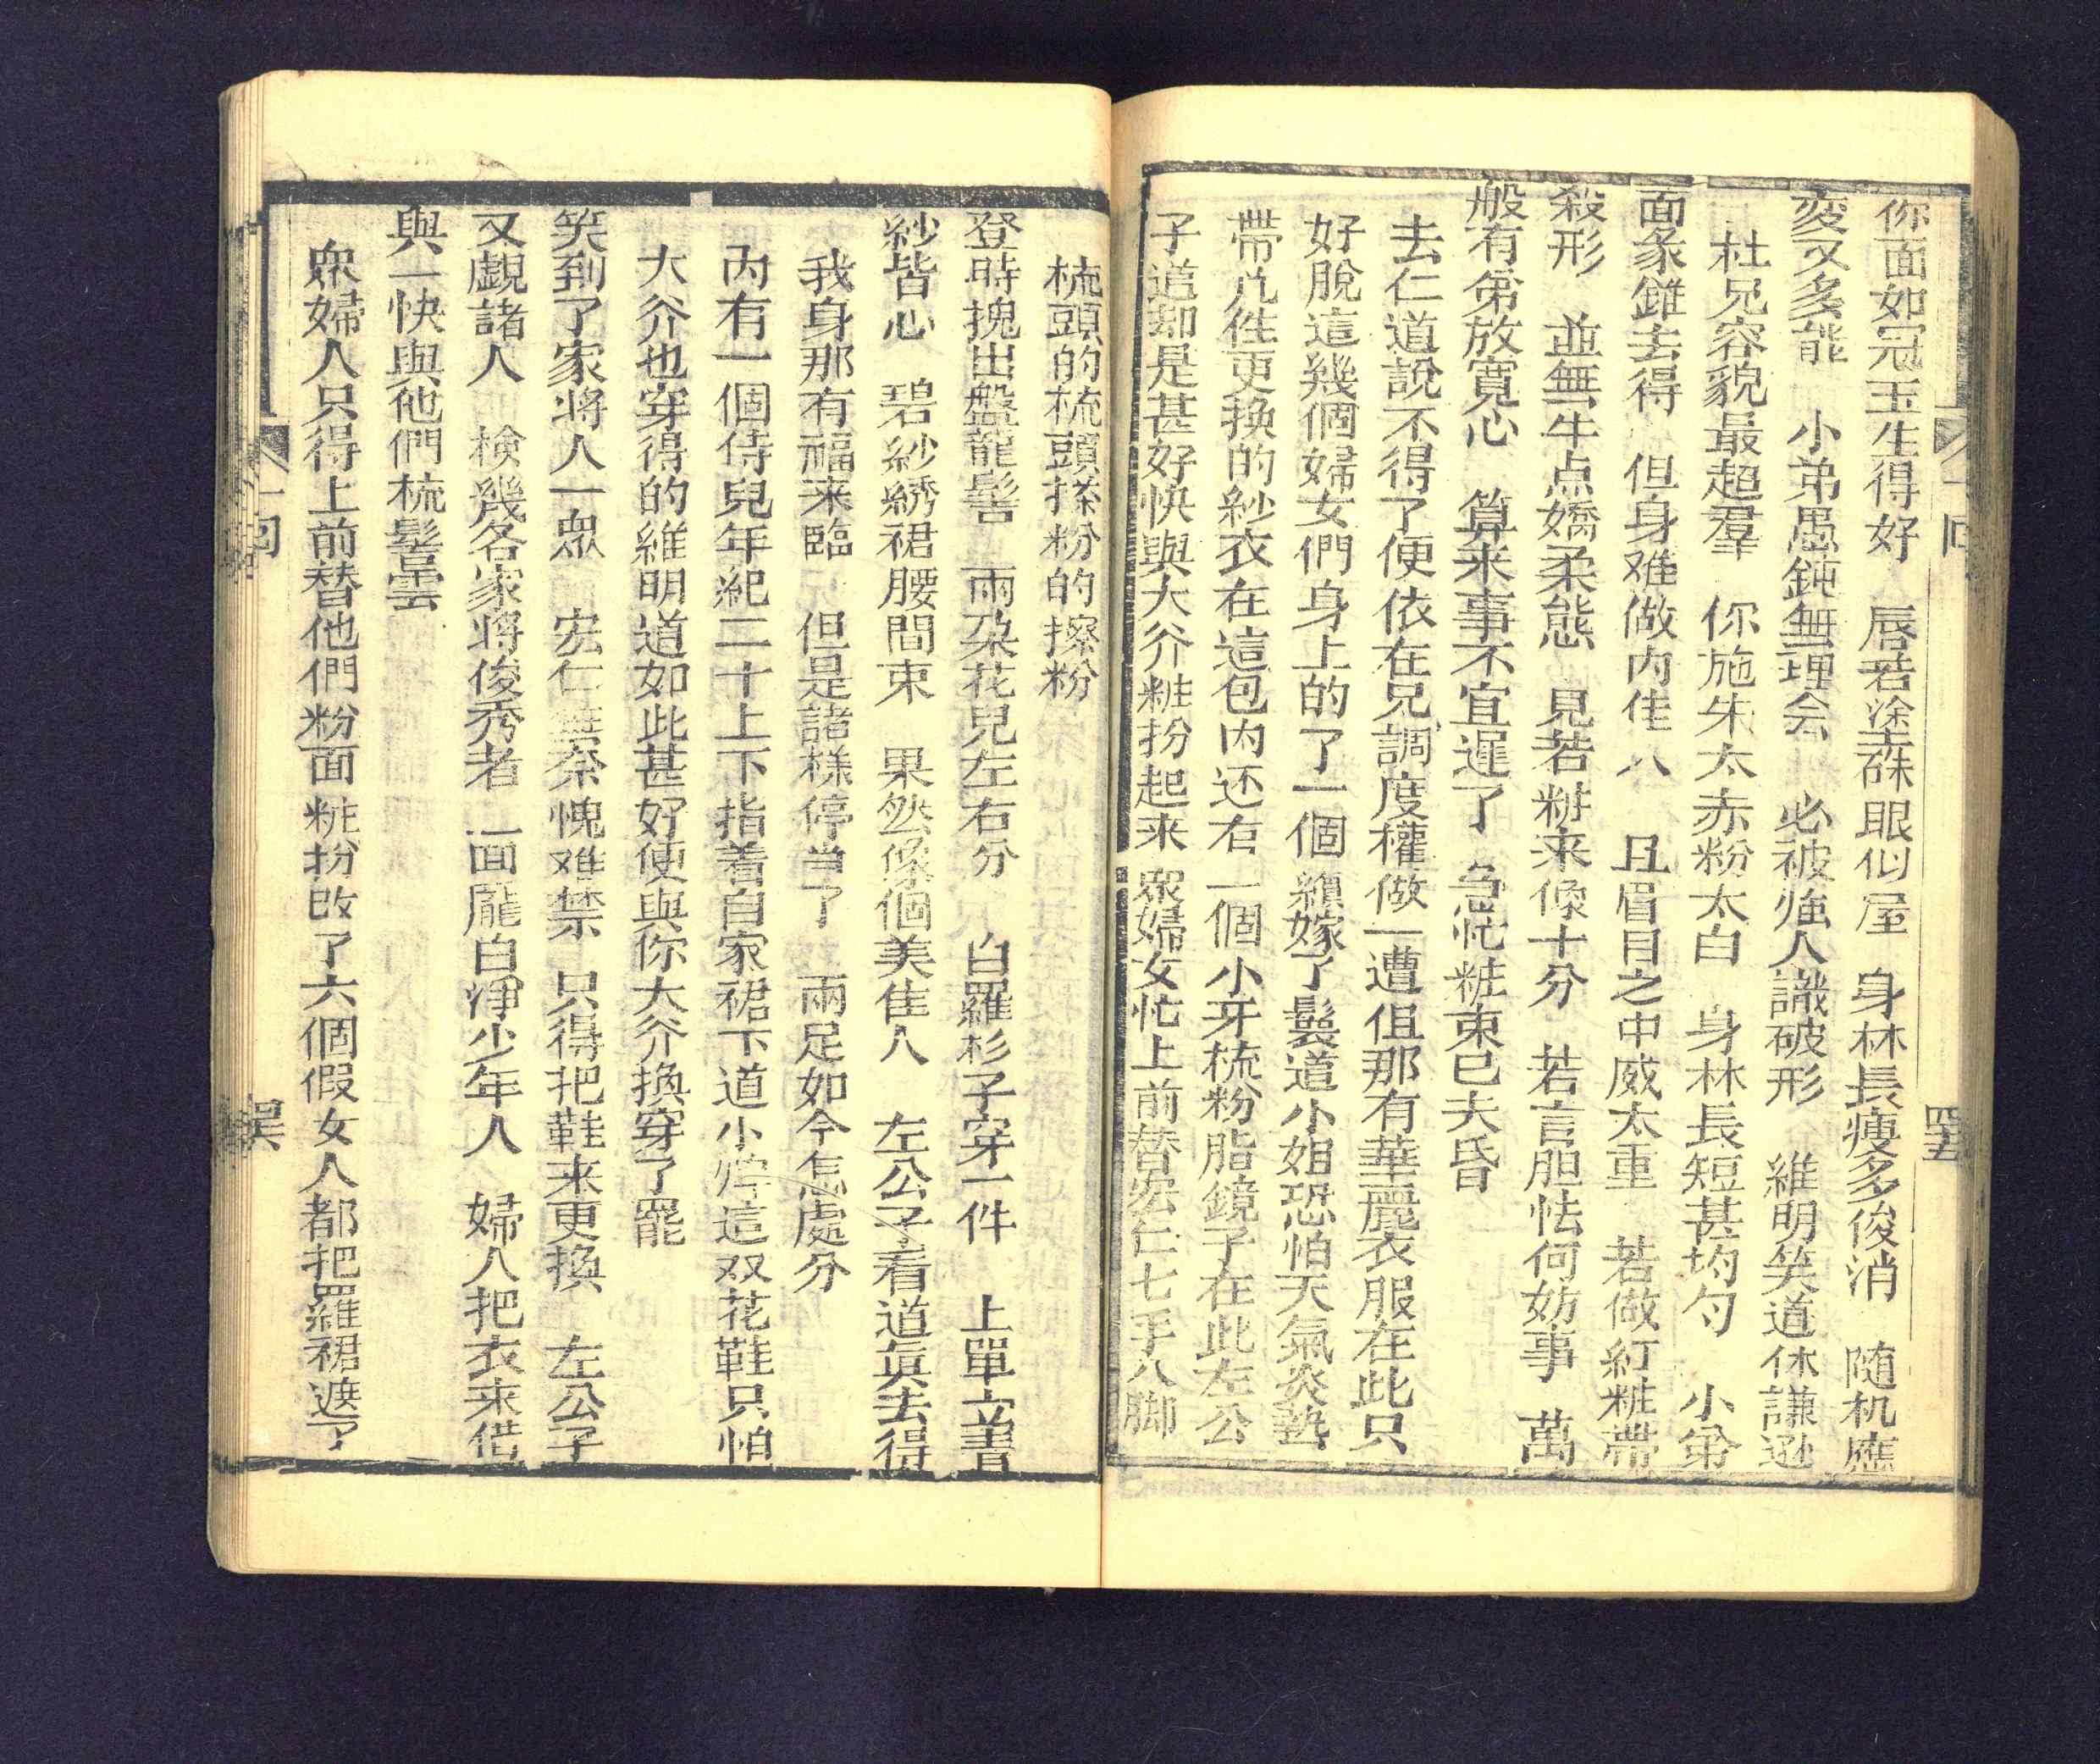 你面如冠玉生得好　唇若塗硃眼似星　身林長瘦多俊消　隨机應
変又多能　小弟愚鈍無理会　必被強人識破形　維明笑道休謙遜
杜兄容貌最超羣　你施朱太赤粉太白　身林長短甚均勻　小弟
面彖雖去得　但身难做内佳人　且眉目之中威太重　若做紅粧帶
殺形　並無半点嬌柔態　見若粧来像十分　若言胆怯何妨事　萬
般有弟放寬心　算来事不宜遲了　急忙粧束已夫昏
去仁道說不得了便依在兄調度權做一遭但那有華麗衣服在此只
好脫這幾個婦女們身上的了一個纐嫁了鬟道小姐恐怕天氣炎熱
帶几件更換的紗衣在這包内还有一個小牙梳粉脂鏡子在此左公
子道却是甚好快與大爷粧扮起来　眾婦女忙上前替宏仁七手八脚
梳頭的梳頭搽粉的擦粉
登時挽出盤龍髻　兩朶花兒左右分　白羅衫子穿一件　上單六
紗皆心　碧紗綉裙腰間束　果然像個美隹人　左公子看道眞去得
我身那有福来臨　但是諸樣停当了　兩足如今怎處分
内有一個侍兒年紀二十上下指着自家裙下道小這双花鞋只怕
大爷也穿得的維明道如此甚好便與你大爷換穿了罷
笑到了家將人一眾　宏仁無奈愧难禁　只得把鞋来更換　左公子
又覷諸人　檢幾名家將俊秀者　一面龐白淨少年人　婦人把衣来借
與一快與他們梳髻雲
眾婦人只得上前替他們粉面粧扮改了六個假女人都把羅裙遮了
一回